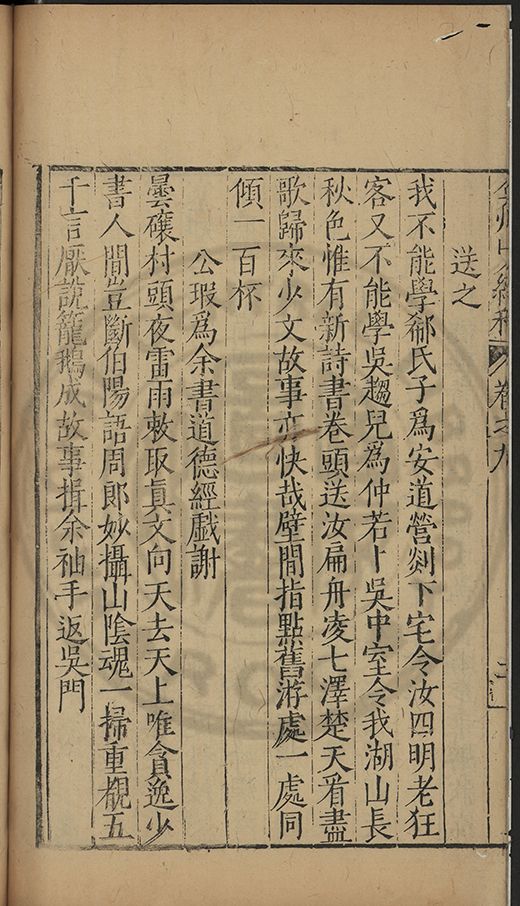 弇州山人續稿 卷之九 二
送之
我不能學郗氏子爲安道營剡下宅令汝四明老狂
客又不能學吳趨兒爲仲若卜吳中室令我湖山長
秋色惟有新詩書卷頭送汝扁舟凌七澤楚天看盡
歌歸來少文故事亦快哉壁間指點舊游處一處同
傾一百杯
公瑕爲余書道德經戲謝
曇礶村頭夜雷雨敕取眞文向天去天上唯貪逸少
書人間豈斷伯陽語周郎妙攝山陰魂一掃重覩五
千言厭說籠鵝成故事揖余袖手返吳門